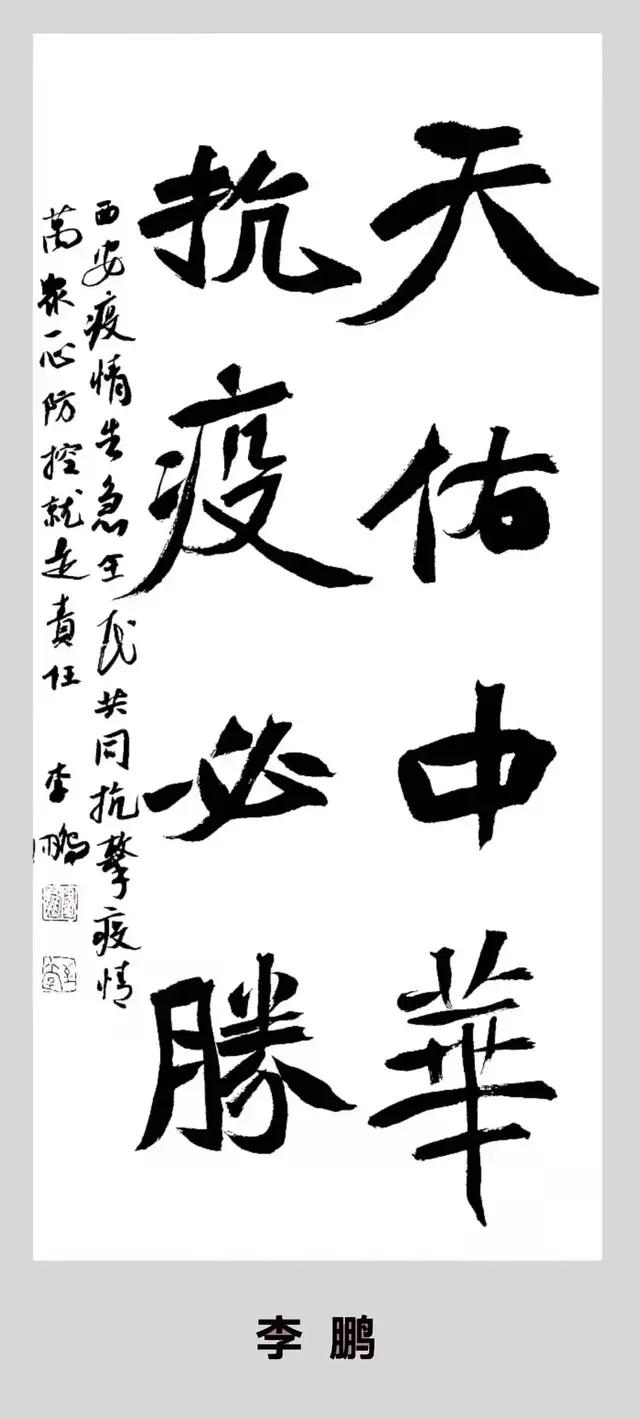 天佑中華
抗疫必勝
西安疫情告急全民共同抗擊疫情
萬眾一心防控就是責任 李鵬
李鹏